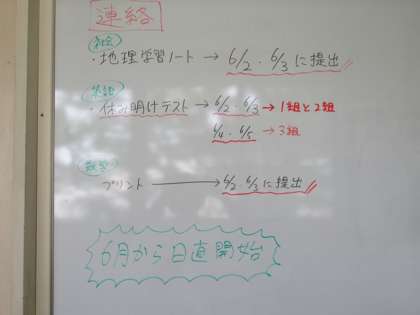 連絡
社会
・地理学習ノート → 6/2・6/3に提出
英語
・休み明けテスト → 6/2・6/3 → 1組と2組
6/4・6/5 → 3組
数学
プリント → 6/2・6/3に提出
6月から日直開始